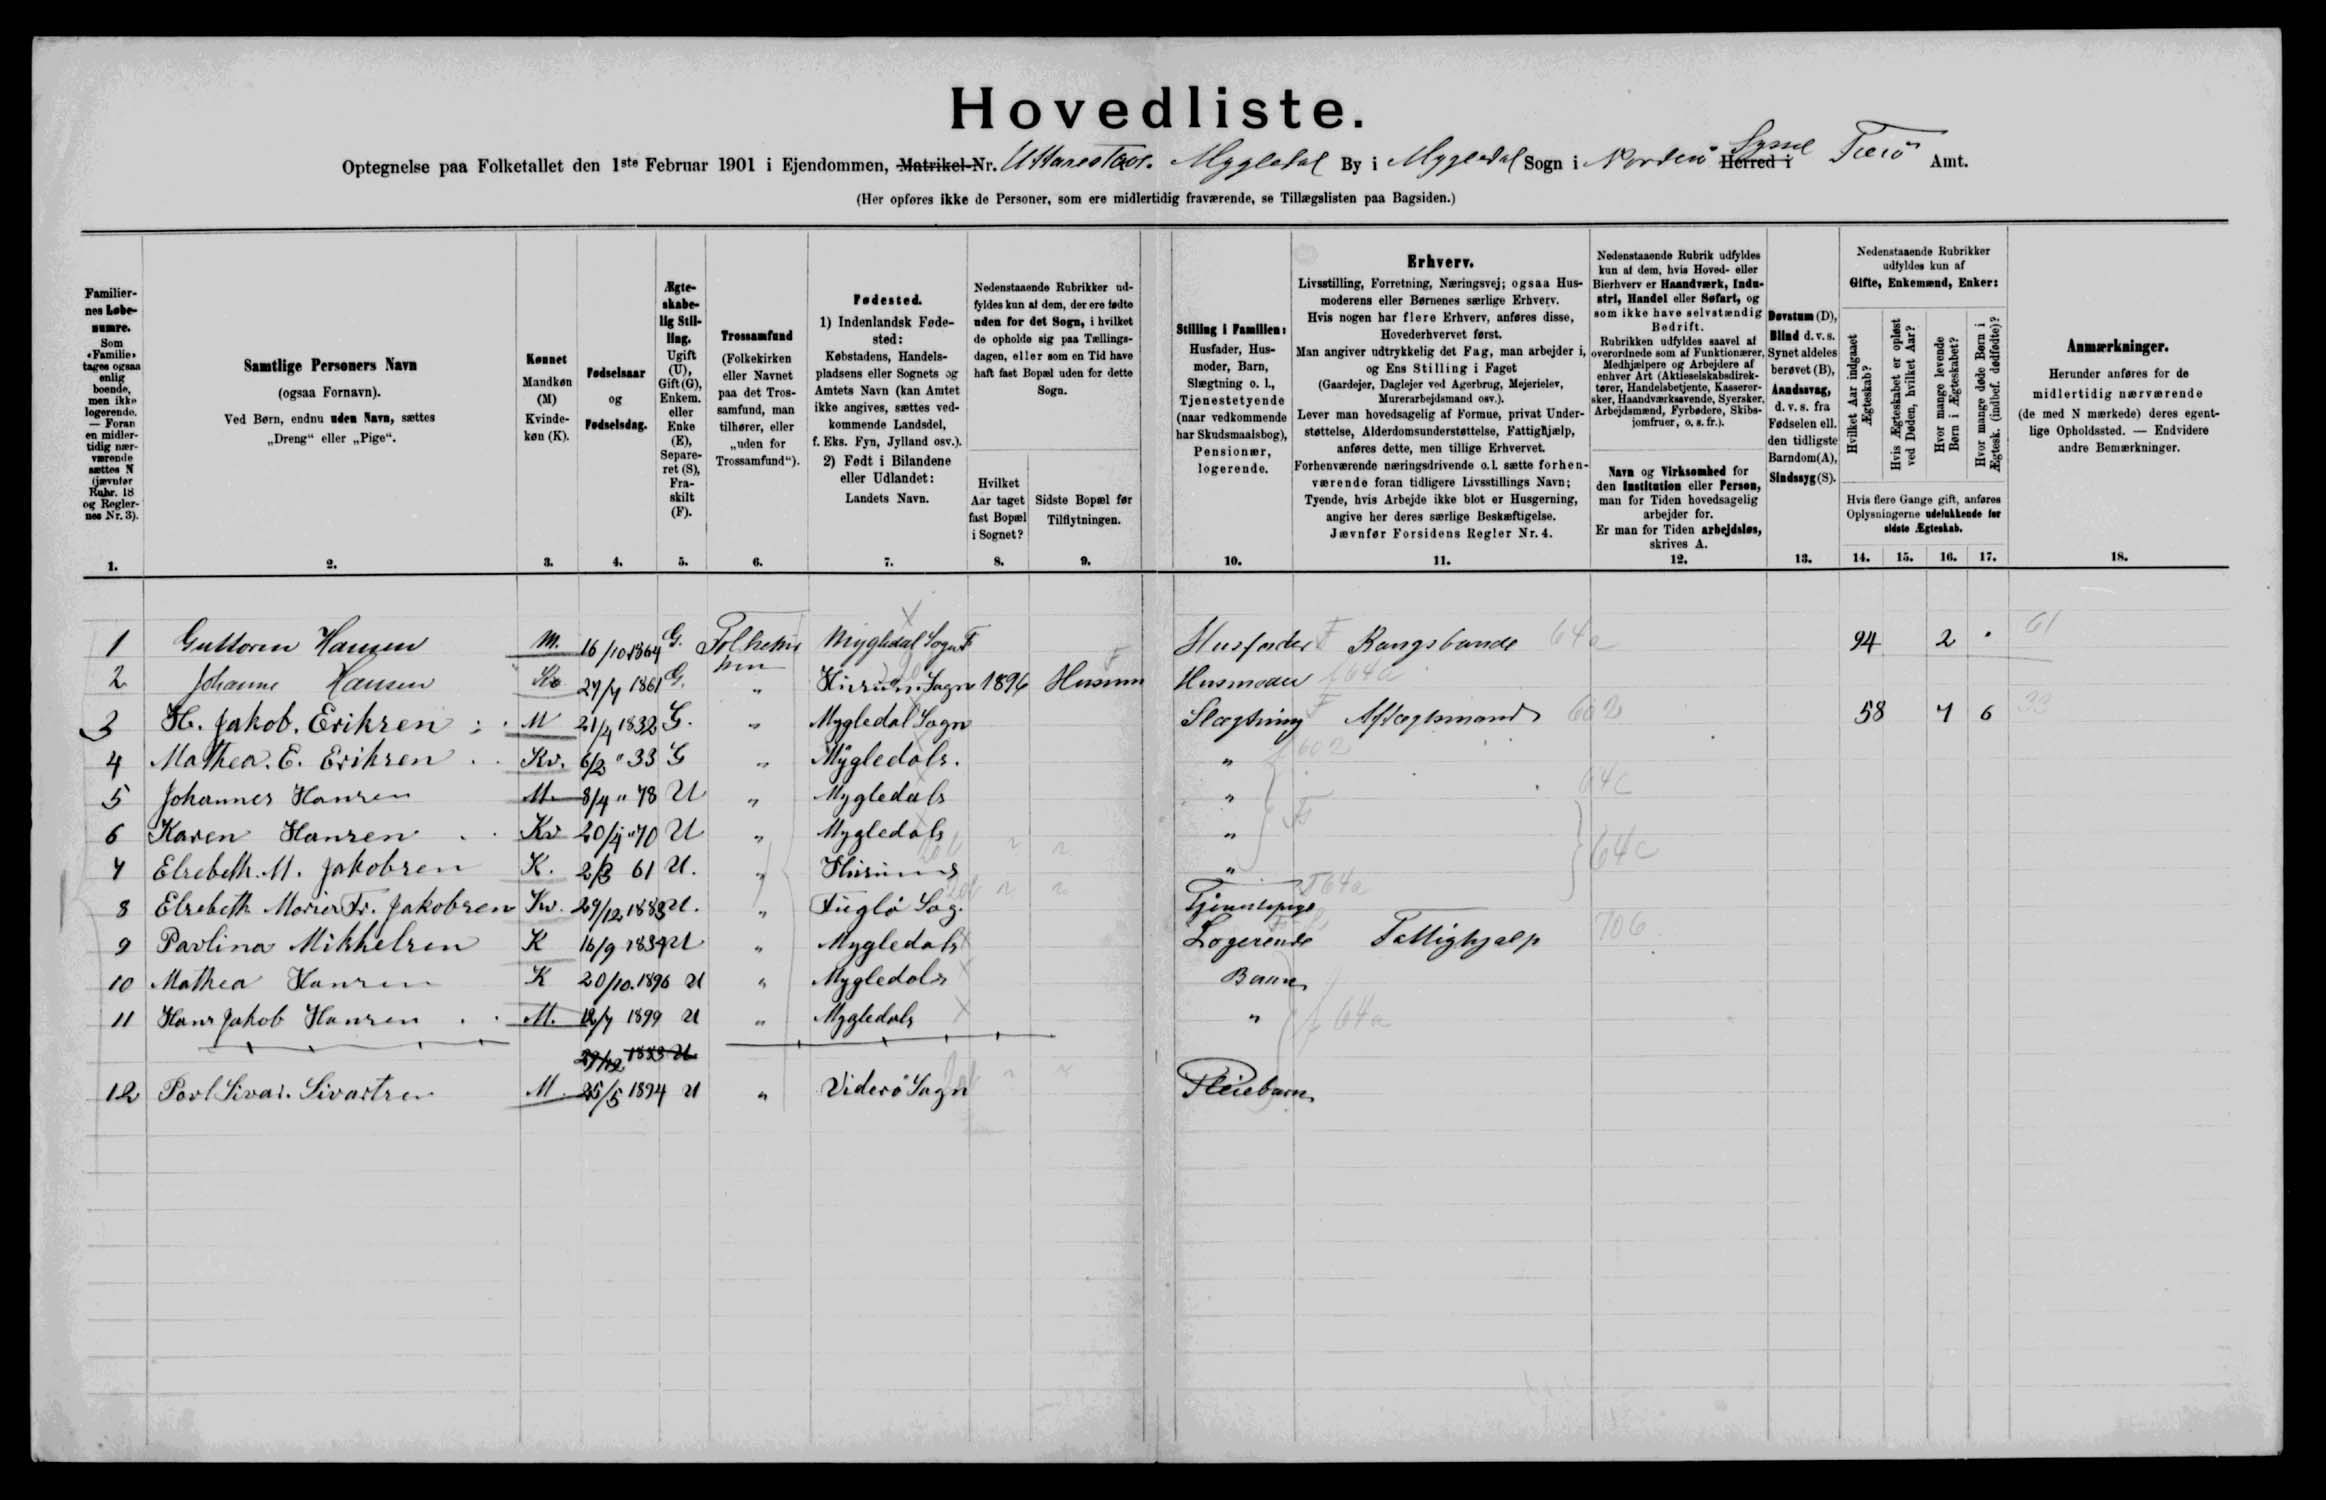 Hovedliste.
Optegnelse paa Folketallet den 1ste Februar 1901 i Ejendommen, Matrikel-Nr. Mygledal By i Mygledal Sogn i Norderö Herred i Syssel Færö Amt.
(Her opføres ikke de Personer, som ere midlertidig fraværende, se Tillægslisten paa Bagsiden.)
Familiernes Løbenumre.
Som «Familie» tages ogsaa enlig boende, men ikke logerende. — Foran en midlertidig nærværende sættes N (jævnfør Rubr. 18 og Reglernes Nr. 3).
1.
Samtlige Personers Navn
(ogsaa Fornavn).
Ved Børn, endnu uden Navn, sættes
„Dreng“ eller „Pige“.
2.
Kønnet
Mandkøn (M)
Kvindekøn (K).
3.
Fødselsaar
og
Fødselsdag.
4.
Ægteskabelig Stilling.
Ugift (U), Gift (G), Enkem. eller Enke (E), Separeret (S), Fraskilt (F).
5.
Trossamfund
(Folkekirken eller Navnet paa det Trossamfund, man tilhører, eller „uden for Trossamfund“).
6.
Fødested.
1) Indenlandsk Fødested:
Købstadens, Handelspladsens eller Sognets og Amtets Navn (kan Amtet ikke angives, sættes vedkommende Landsdel, f. Eks. Fyn, Jylland osv.).
2) Født i Bilandene eller Udlandet:
Landets Navn.
7.
Nedenstaaende Rubrikker udfyldes kun af dem, der ere fødte uden for det Sogn, i hvilket de opholde sig paa Tællingsdagen, eller som en Tid have haft fast Bopæl uden for dette Sogn.
Hvilket Aar taget fast Bopæl i Sognet?
8.
Sidste Bopæl før Tilflytningen.
9.
Stilling i Familien:
Husfader, Husmoder, Barn, Slægtning o. l., Tjenestetyende (naar vedkommende har Skudsmaalsbog), Pensionær, logerende.
10.
Erhverv.
Livsstilling, Forretning, Næringsvej; ogsaa Husmoderens eller Børnenes særlige Erhverv.
Hvis nogen har flere Erhverv, anføres disse, Hovederhvervet først.
Man angiver udtrykkelig det Fag, man arbejder i, og Ens Stilling i Faget
(Gaardejer, Daglejer ved Agerbrug, Mejerielev, Murerarbejdsmand osv.).
Lever man hovedsagelig af Formue, privat Understøttelse, Alderdomsunderstøttelse, Fattighjælp, anføres dette, men tillige Erhvervet.
Forhenværende næringsdrivende o. l. sætte forhenværende foran tidligere Livsstillings Navn;
Tyende, hvis Arbejde ikke blot er Husgerning, angive her deres særlige Beskæftigelse.
Jævnfør Forsidens Regler Nr. 4.
11.
Nedenstaaende Rubrik udfyldes kun af dem, hvis Hoved- eller Bierhverv er Haandværk, Industri, Handel eller Søfart, og som ikke have selvstændig Bedrift.
Rubrikken udfyldes saavel af overordnede som af Funktionærer, Medhjælpere og Arbejdere af enhver Art (Aktieselskabsdirektører, Handelsbetjente, Kasserersker, Haandværkssvende, Syersker, Arbejdsmænd, Fyrbødere, Skibsjomfruer, o. s. fr.).
Navn og Virksomhed for den Institution eller Person, man for Tiden hovedsagelig arbejder for.
Er man for Tiden arbejdsløs, skrives A.
12.
Døvstum (D), Blind d. v. s. Synet aldeles berøvet (B), Aandssvag, d. v. s. fra Fødselen ell. den tidligste Barndom (A), Sindssyg (S).
13.
Nedenstaaende Rubrikker udfyldes kun af
Gifte, Enkemænd, Enker:
Hvilket Aar indgaaet Ægteskab?
Hvis Ægteskabet er opløst ved Døden, hvilket Aar?
Hvor mange levende Børn i Ægteskabet?
Hvor mange døde Børn i Ægtesk. (indbef. dødfødte)?
Hvis flere Gange gift, anføres Oplysningerne udelukkende for sidste Ægteskab.
14. 15. 16. 17.
Anmærkninger.
Herunder anføres for de midlertidig nærværende (de med N mærkede) deres egentlige Opholdssted. — Endvidere andre Bemærkninger.
18.
1 Guttorm Hansen M. 16/10 1864 G. Folkekirken Mygledal Sogn F Husfader F Kongsbonde 64a 94 2 61
2 Johanne Hansen Kv 27/7 1861 G. „ Husum Sogn 1896 Husum Husmoder 64a
3 H. Jakob. Eriksen M 21/4 1832 G. „ Mygledal Sogn Slægtning F Aftægtsmand 602 58 7 6 33
4 Mathea. E. Eriksen Kv. 6/2 " 33 G „ Mygledals. „ 602
5 Johannes Hansen M. 8/4 " 78 U „ Mygledals „ 64c
6 Karen Hansen Kv 20/4 " 70 U „ Mygledals „
7 Elsebeth. M. Jakobsen K. 2/3 61 U. „ Husums „ 64c
8 Elsebeth Maria Fr. Jakobsen Kv. 29/12 1883 U. „ Fuglö Sog. Tjenestepige 64a
9 Pavlina Mikkelsen K 16/9 1839 U „ Mygledals Logerende Fattighjælp 706
10 Mathea Hansen K 20/10. 1896 U „ Mygledals Barn
11 Hans Jakob Hansen M. 12/7 1899 U „ Mygledals „ 64a
29/12 1883 U.
12 Povl Sivar. Sivartsen M. 25/5 1894 U „ Viderö Sogn Pleiebarn